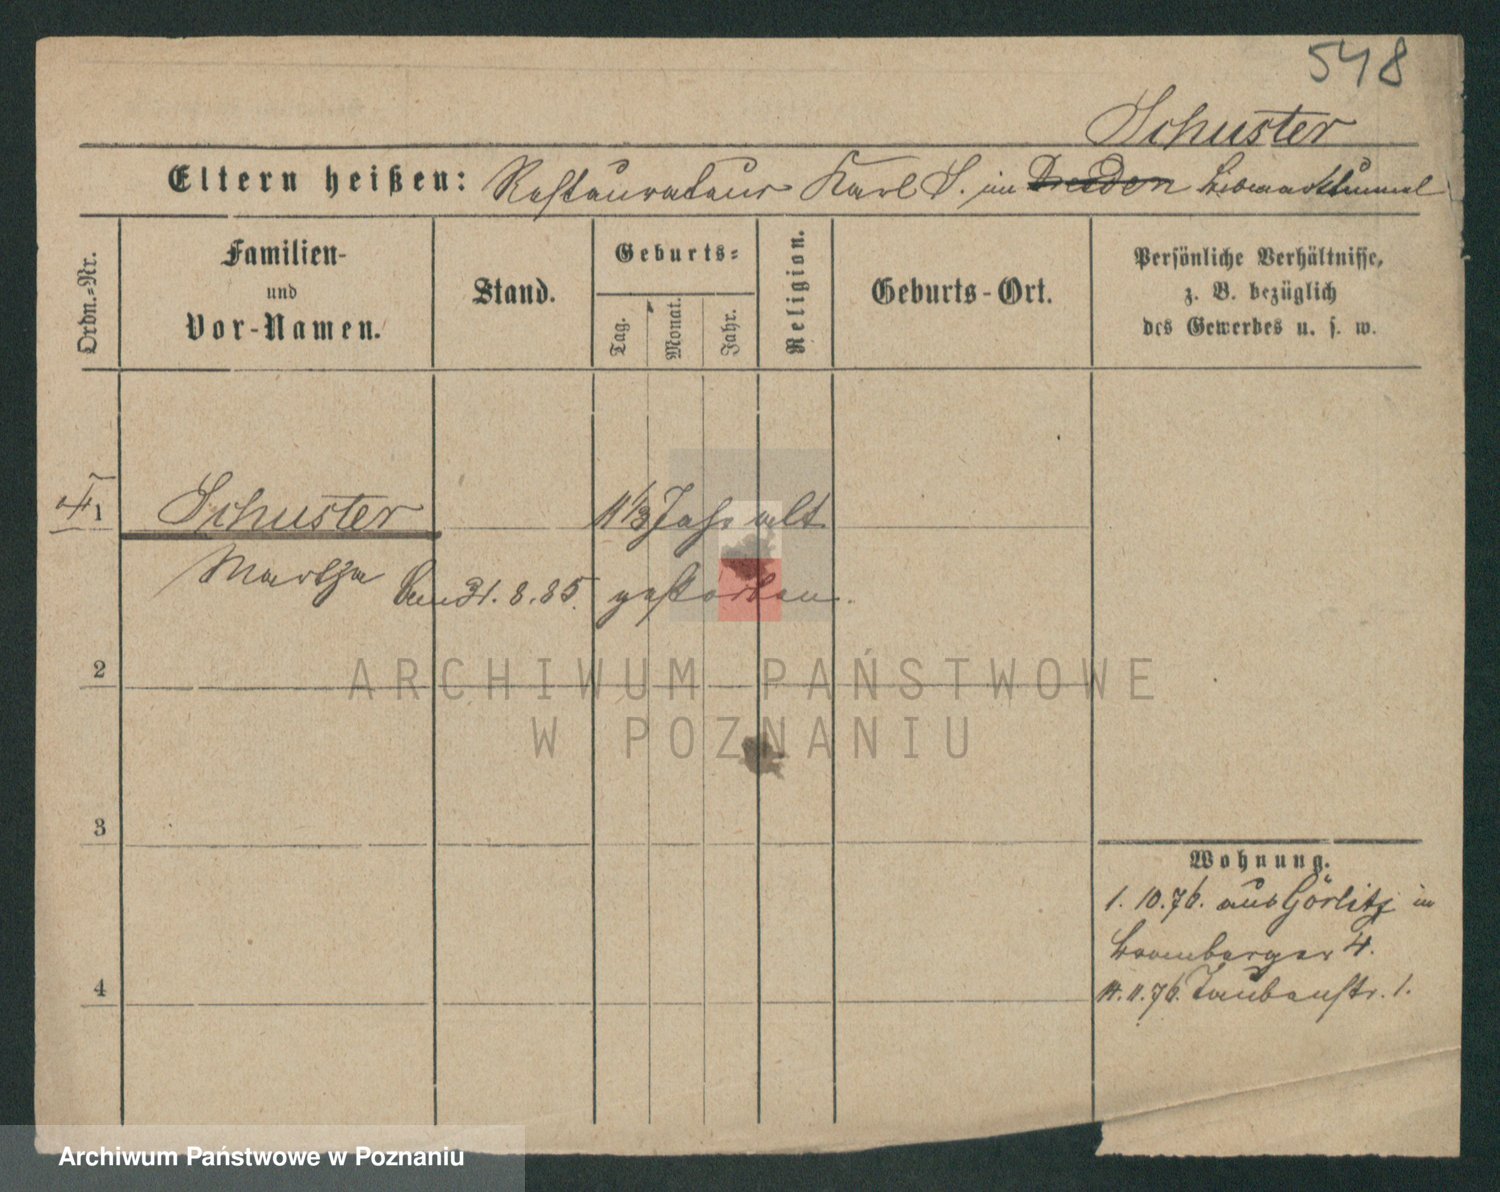 548
Schuster
Eltern heißen: Restaurateur Karl S. im Dresden
Ordn.-Nr.
Familien-
und
Vor-Namen.
Stand.
Geburts-
Tag.
Monat.
Jahr.
Religion.
Geburts-Ort.
Persönliche Verhältnisse,
z. B. bezüglich
des Gewerbes u. s. w.
1
Schuster
11 1/3 Jahr alt
Martha
am 31. 8. 85. gestorben.
2
ARCHIWUM PAŃSTWOWE
W POZNANIU
3
Wohnung.
1. 10. 76. aus Görlitz in
Bromberger 4.
11. 76. Taubenstr. 1.
4
Archiwum Państwowe w Poznaniu